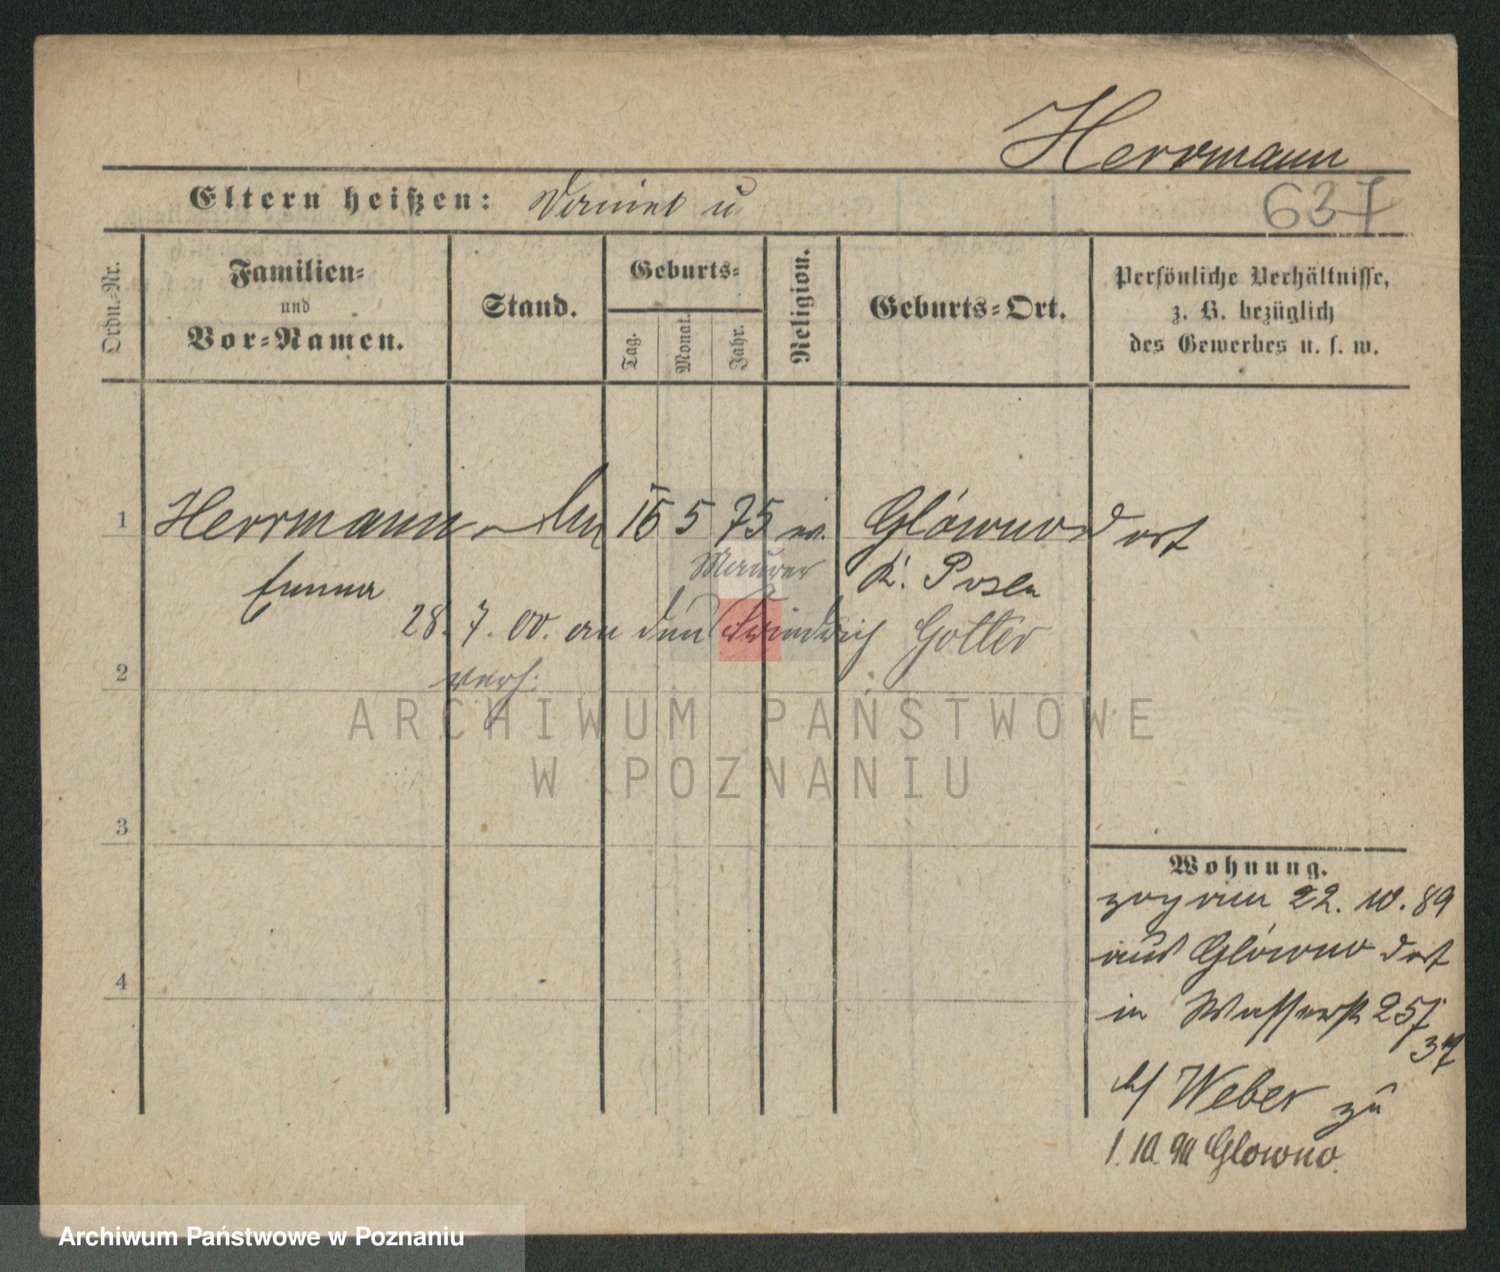 Herrmann
Eltern heißen: Daniel u
637
Ordn.-Nr.
Familien-
und
Vor-Namen.
Stand.
Geburts-
Tag.
Monat.
Jahr.
Religion.
Geburts-Ort.
Persönliche Verhältnisse,
z. B. bezüglich
des Gewerbes u. s. w.
1 Herrmann 16 5 75 ev. Glówno dort
Emma Maurer K. Posen
28. 7. 00. an den Friedrich Gotter
2 verh:
ARCHIWUM PAŃSTWOWE
W POZNANIU
3
Wohnung.
zog am 22. 10. 89
aus Glówno dort
4
in Wasserstr 25/
37
b/ Weber zu
1. 10 90 Glowno.
Archiwum Państwowe w Poznaniu